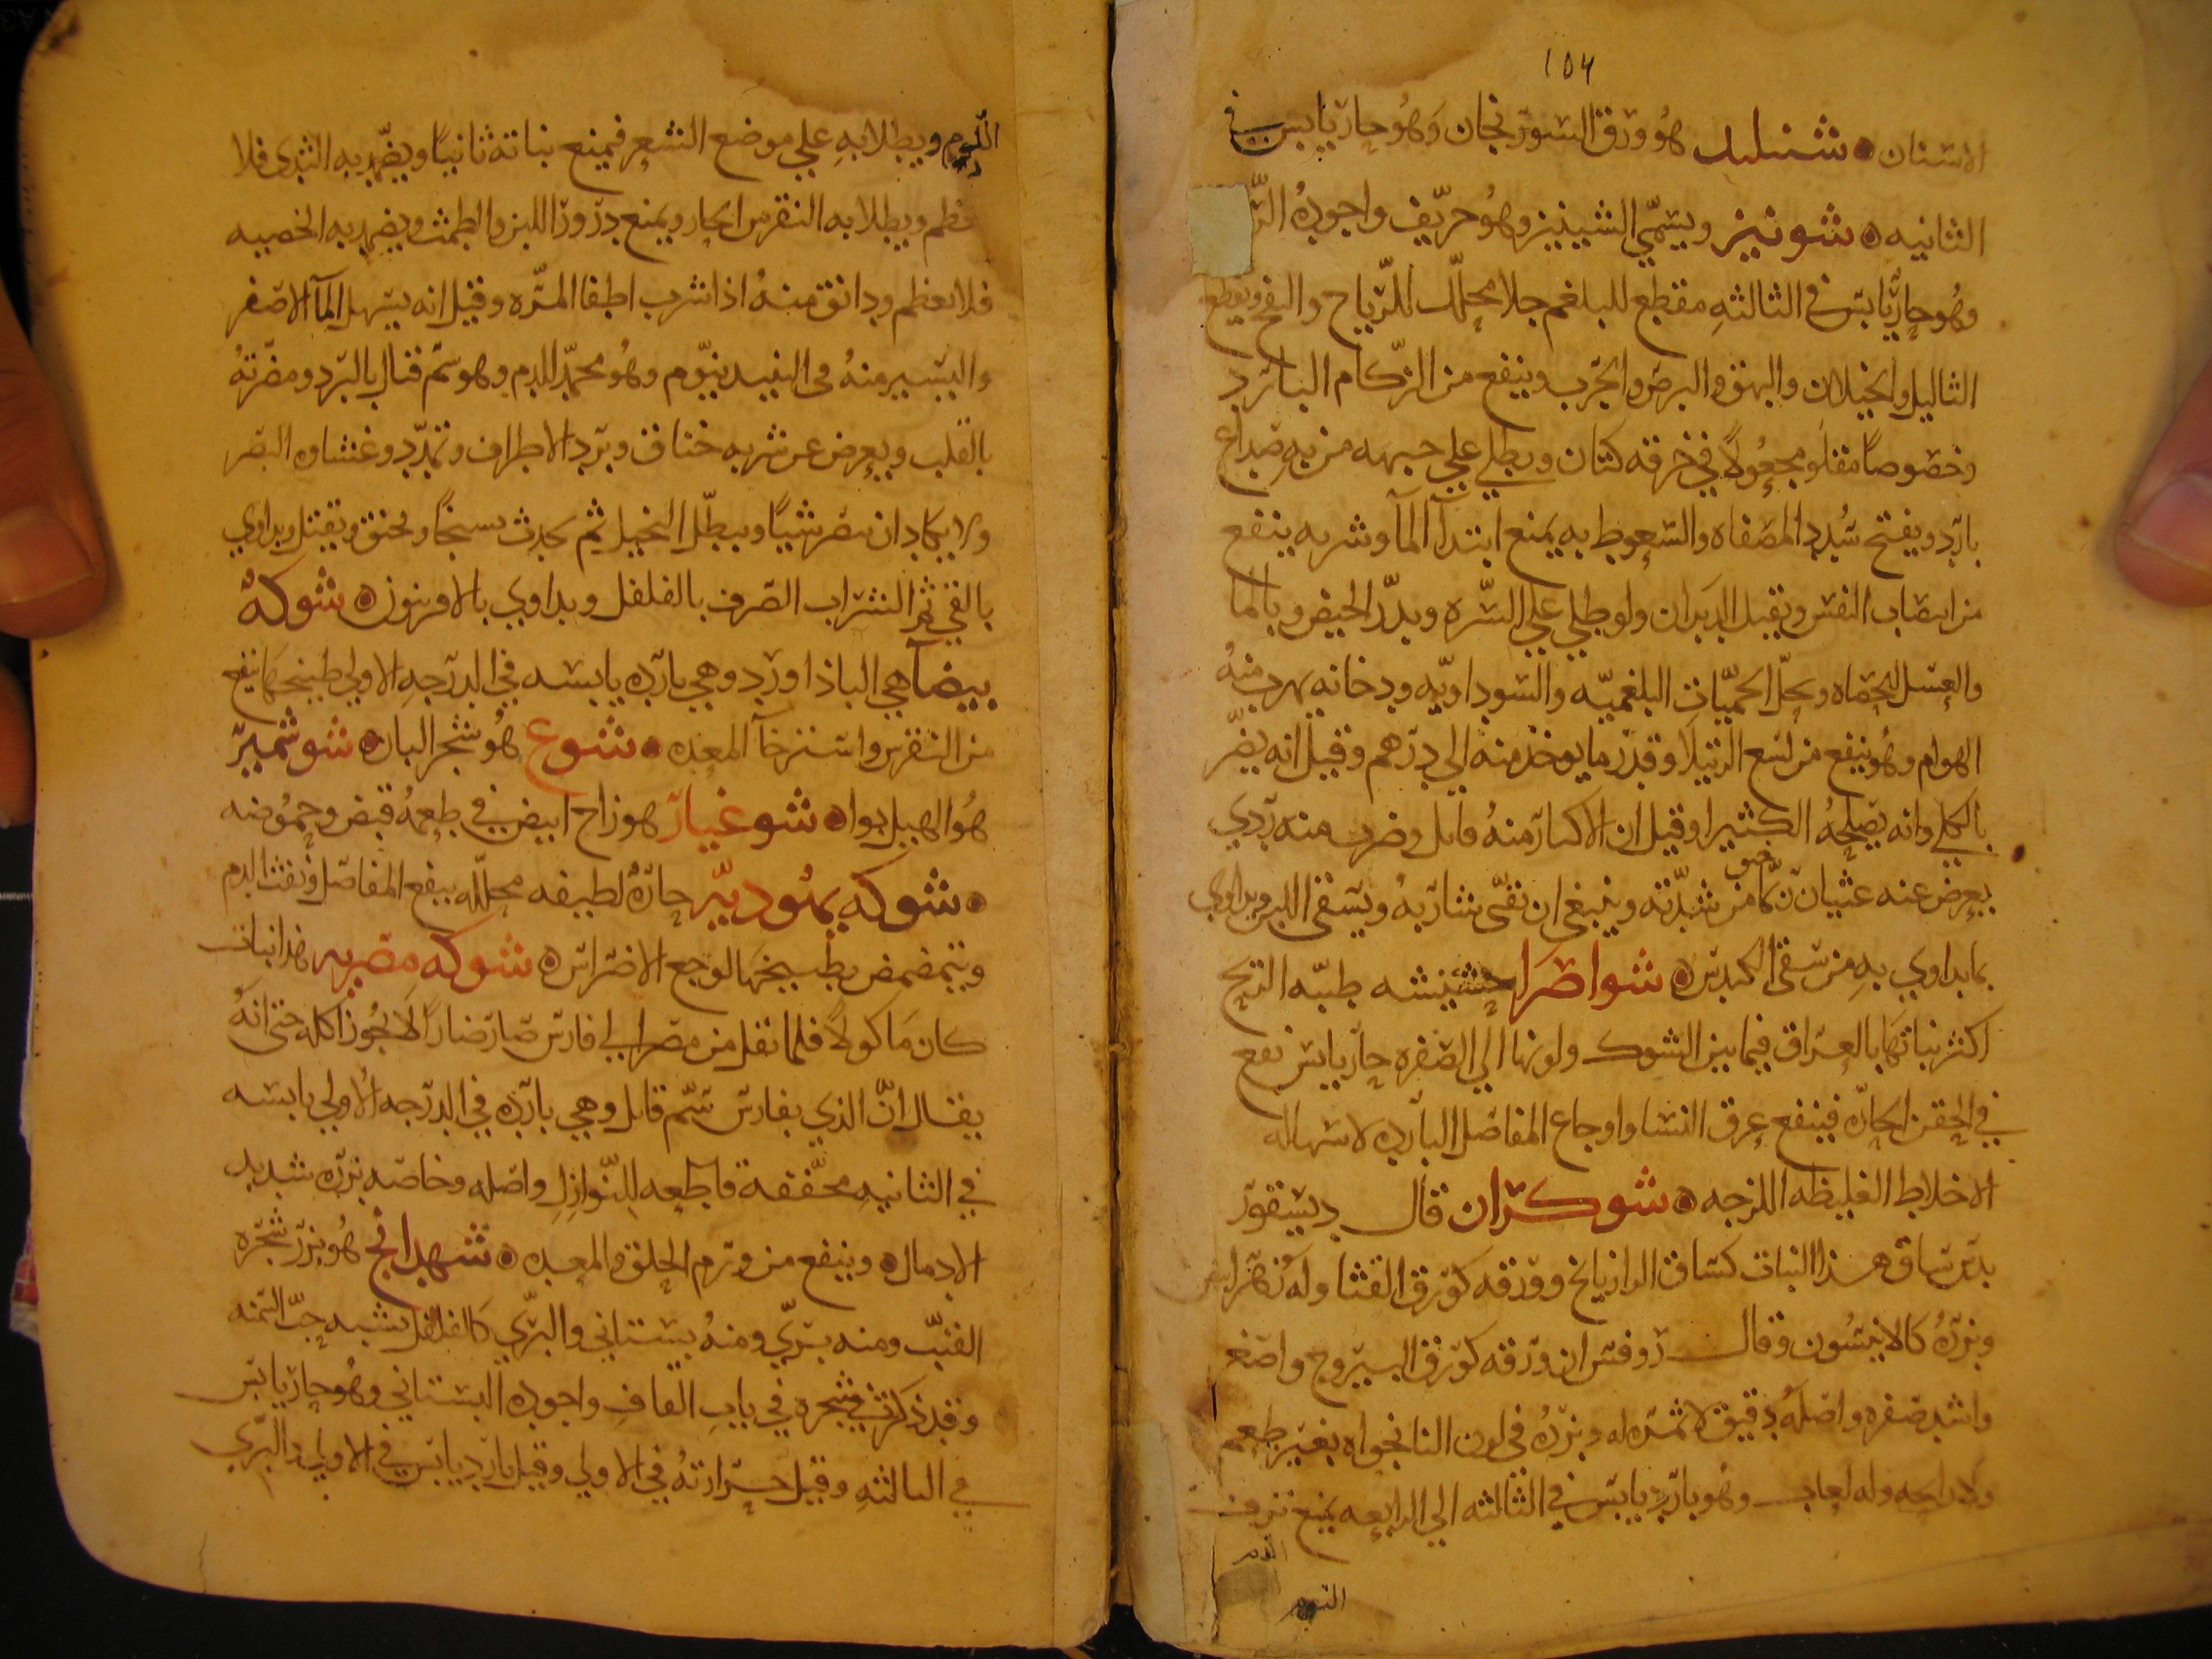 104
الاسنان ۞ شنبليد هو ورق السورنجان وهو حار يابس في
الثانيه ۞ شونيز ويسمي الشينيز وهو حريف واجوده
وهو حار يابس في الثالثه مقطع للبلغم جلا محلل للرياح والنفخ ويقطع
الثاليل والخيلان والبهق والبرص والجرب وينفع من الزكام البارد
وخصوصا مقلو مجعولا في خرقه كتان ويطلي علي جبهه من به صداع
بارد ويفتح سدد المصفاه والسعوط به يمنع ابتدآ المآ وشربه ينفع
من انتصاب النفس ويقتل الديدان ولو طلي علي السره ويدر الحيض وبالما
والعسل للحصاه ويحل الحميات البلغميه والسوداويه ودخانه يهرب منه
الهوام وهو ينفع من لسع الرتيلا وقدر ما يوخذ منه الي درهم وقيل انه يضر
بالكلي وانه يصلحه الكثيرا وقيل ان الاكثار منه قاتل وضرب منه ردي
يعرض عنه غثيان من شدته وينبغي ان نقي شاربه ويسقي اللبن ويداوي
بما يداوي به من سقي الكندس ۞ شواصرا حشيشه طيبه الريح
اكثر نباتها بالعراق فيما بين الشوك ولونها الي الصفره حار يابس نفع
في الحقن الحاره فينفع عرق النسا واوجاع المفاصل البارده لاسهاله
الاخلاط الغليظه اللزجه ۞ شوكران قال ديسقور
يدس ساق هذا النبات كساق الرازيانج وورقه كورق القثا وله زهر ابيض
وبزره كالانيسون وقال روفس ان ورقه كورق اليبروج واصغر
واشد صفره واصله دقيق لا ثمره له وبزره في لون النانخواه بغير طعم
ولا رايحه وله لعاب وهو بارد يابس في الثالثه الي الرابعه يمنع نزف
الدم
الدم ويطلا به علي موضع الشعر فيمنع نباته ثانيا ويضمد به الثدي فلا
يعظم ويطلا به النقرس الحار ويمنع درور اللبن والطمث ويضمد به الخصيه
فلا تعظم ودانق منه اذا شرب اطفا المره وقيل انه يسهل المآ الاصفر
واليسير منه في النبيد ينوم وهو محمد للدم وهو سم قتال بالبرد ومضرته
بالقلب ويعرض عن شربه خناق وبرد الاطراف وتمدد وغشاوه البصر
ولا يكاد ان يبصر شيا ويبطل التخيل ثم يحدث تسنجا ويخنق ويقتل ويداوي
بالقي ثم الشراب الصرف بالفلفل ويداوي بالافربنون ۞ شوكة
بيضآ هي الباذاورد وهي بارده يابسه في الدرجه الاولي طبيخها ينفع
من النقرس واسترخآ المعده ۞ شوع هو شجر البان ۞ شوشمير
هو الهيل بوا ۞ شوغيار هو زاج ابيض في طعمه قبض وحموضه
۞ شوكه يهوديه حاره لطيفه محلله ينفع المفاصل ونفث الدم
ويتمضمض بطبيخها لوجع الاضراس ۞ شوكه مصريه هذا نبات
كان ماكولا فلما نقل من مصر الي فارس صار ضارا لا يجوز اكله حتي انه
يقال ان الذي بفارس سم قاتل وهي بارده في الدرجه الاولي يابسه
في الثانيه مجففة قاطعه للنوازل واصله وخاصه بزره شديد
الادمال ۞ وينفع من ورم الحلق والمعده ۞ شهدانج هو بزر شجره
القنب ومنه بري ومنه بستاني والبري كالفلفل يشبه حب السمنه
وقد ذكرت شجره في باب القاف واجوده البستاني وهو حار يابس
في الثالثه وقيل حرارته في الاولي وقيل بارد يابس في الاولي والبري